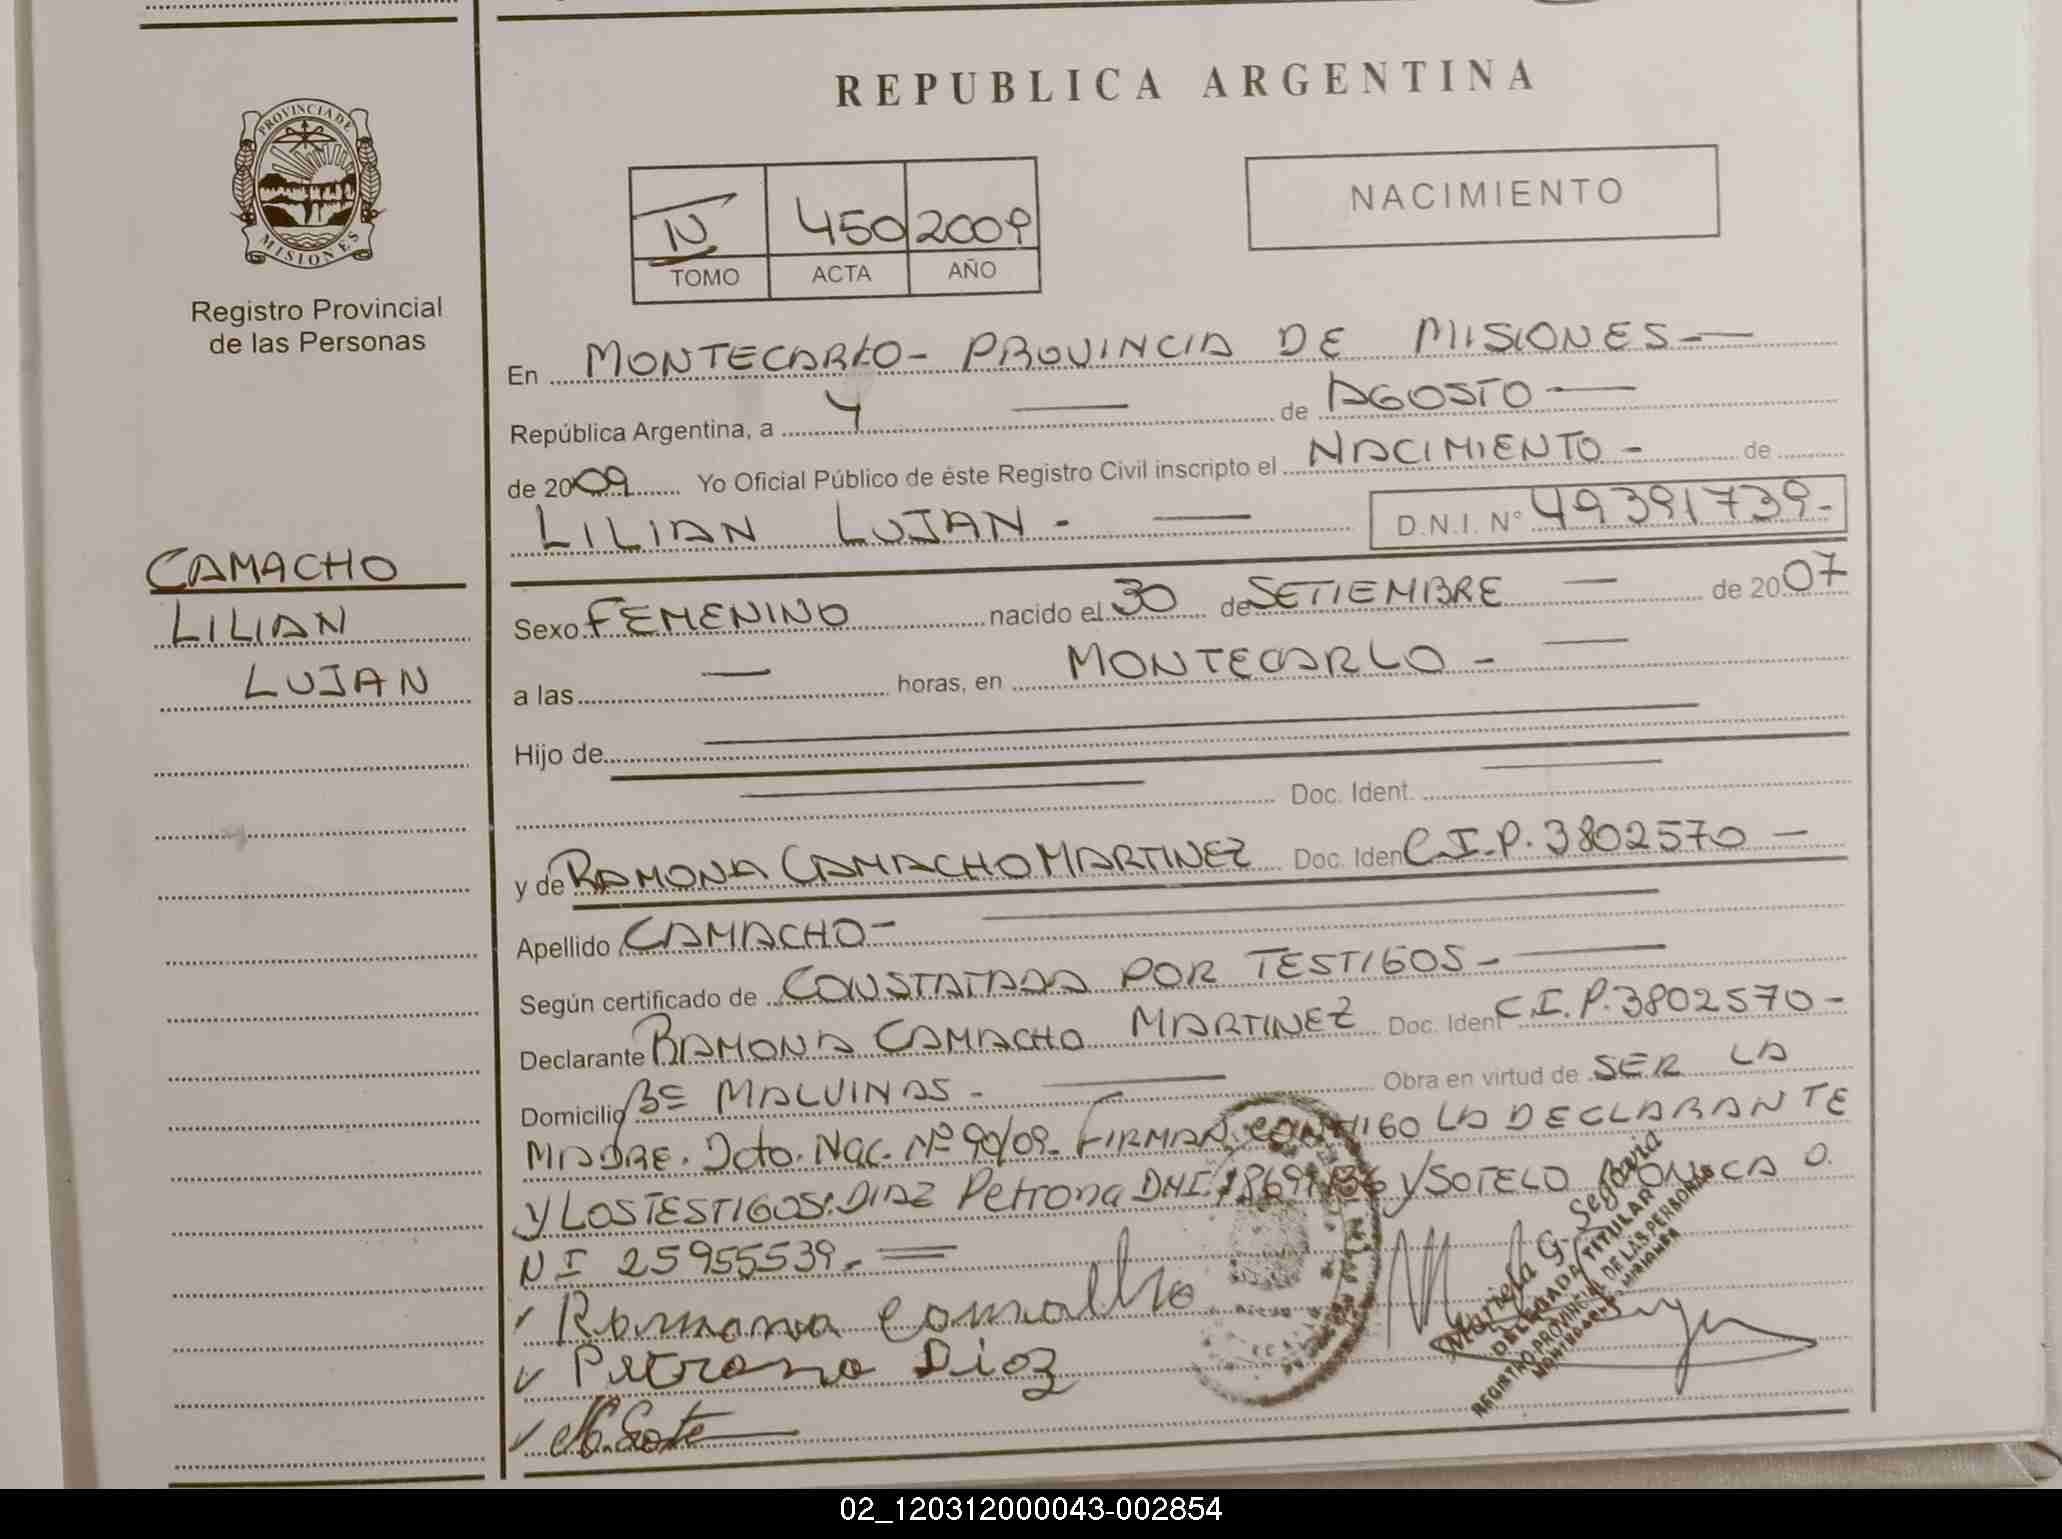 REPUBLICA ARGENTINA
PROVINCIA DE MISIONES
Registro Provincial
de las Personas
NACIMIENTO
IV 450 2009
TOMO ACTA AÑO
En MONTECARLO - PROVINCIA DE MISIONES -
República Argentina, a 4 de AGOSTO
de 2009 Yo Oficial Público de éste Registro Civil inscripto el NACIMIENTO - de
LILIAN LUJAN - D.N.I. N° 49391739-
CAMACHO
LILIAN
LUJAN
Sexo FEMENINO nacido el 30 de SETIEMBRE de 2007
a las — horas, en MONTECARLO -
Hijo de
Doc. Ident.
y de RAMONA CAMACHO MARTINEZ Doc. Iden C.I.P. 3802570 -
Apellido CAMACHO -
Según certificado de CONSTATADA POR TESTIGOS -
Declarante RAMONA CAMACHO MARTINEZ Doc. Ident C.I.P. 3802570 -
Domicilio Bº MALVINAS - Obra en virtud de SER LA
MADRE. Dcto. Nac. Nº 90/09. FIRMAN CONMIGO LA DECLARANTE
Y LOS TESTIGOS: DIAZ Petrona DNI. Y SOTELO MONICA D.
N I 25955539.-
Ramona Camacho
Petrona Diaz
Mariela G. Segovia
DELEGADA TITULAR
REGISTRO PROVINCIAL DE LAS PERSONAS
MONTECARLO - MISIONES
02_120312000043-002854